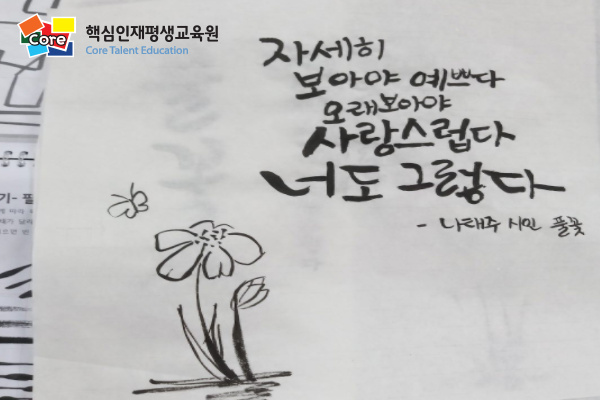 Core
핵심인재평생교육원
Core Talent Education
자세히
보아야 예쁘다
오래보아야
사랑스럽다
너도 그렇다
- 나태주 시인 풀꽃
기- 필